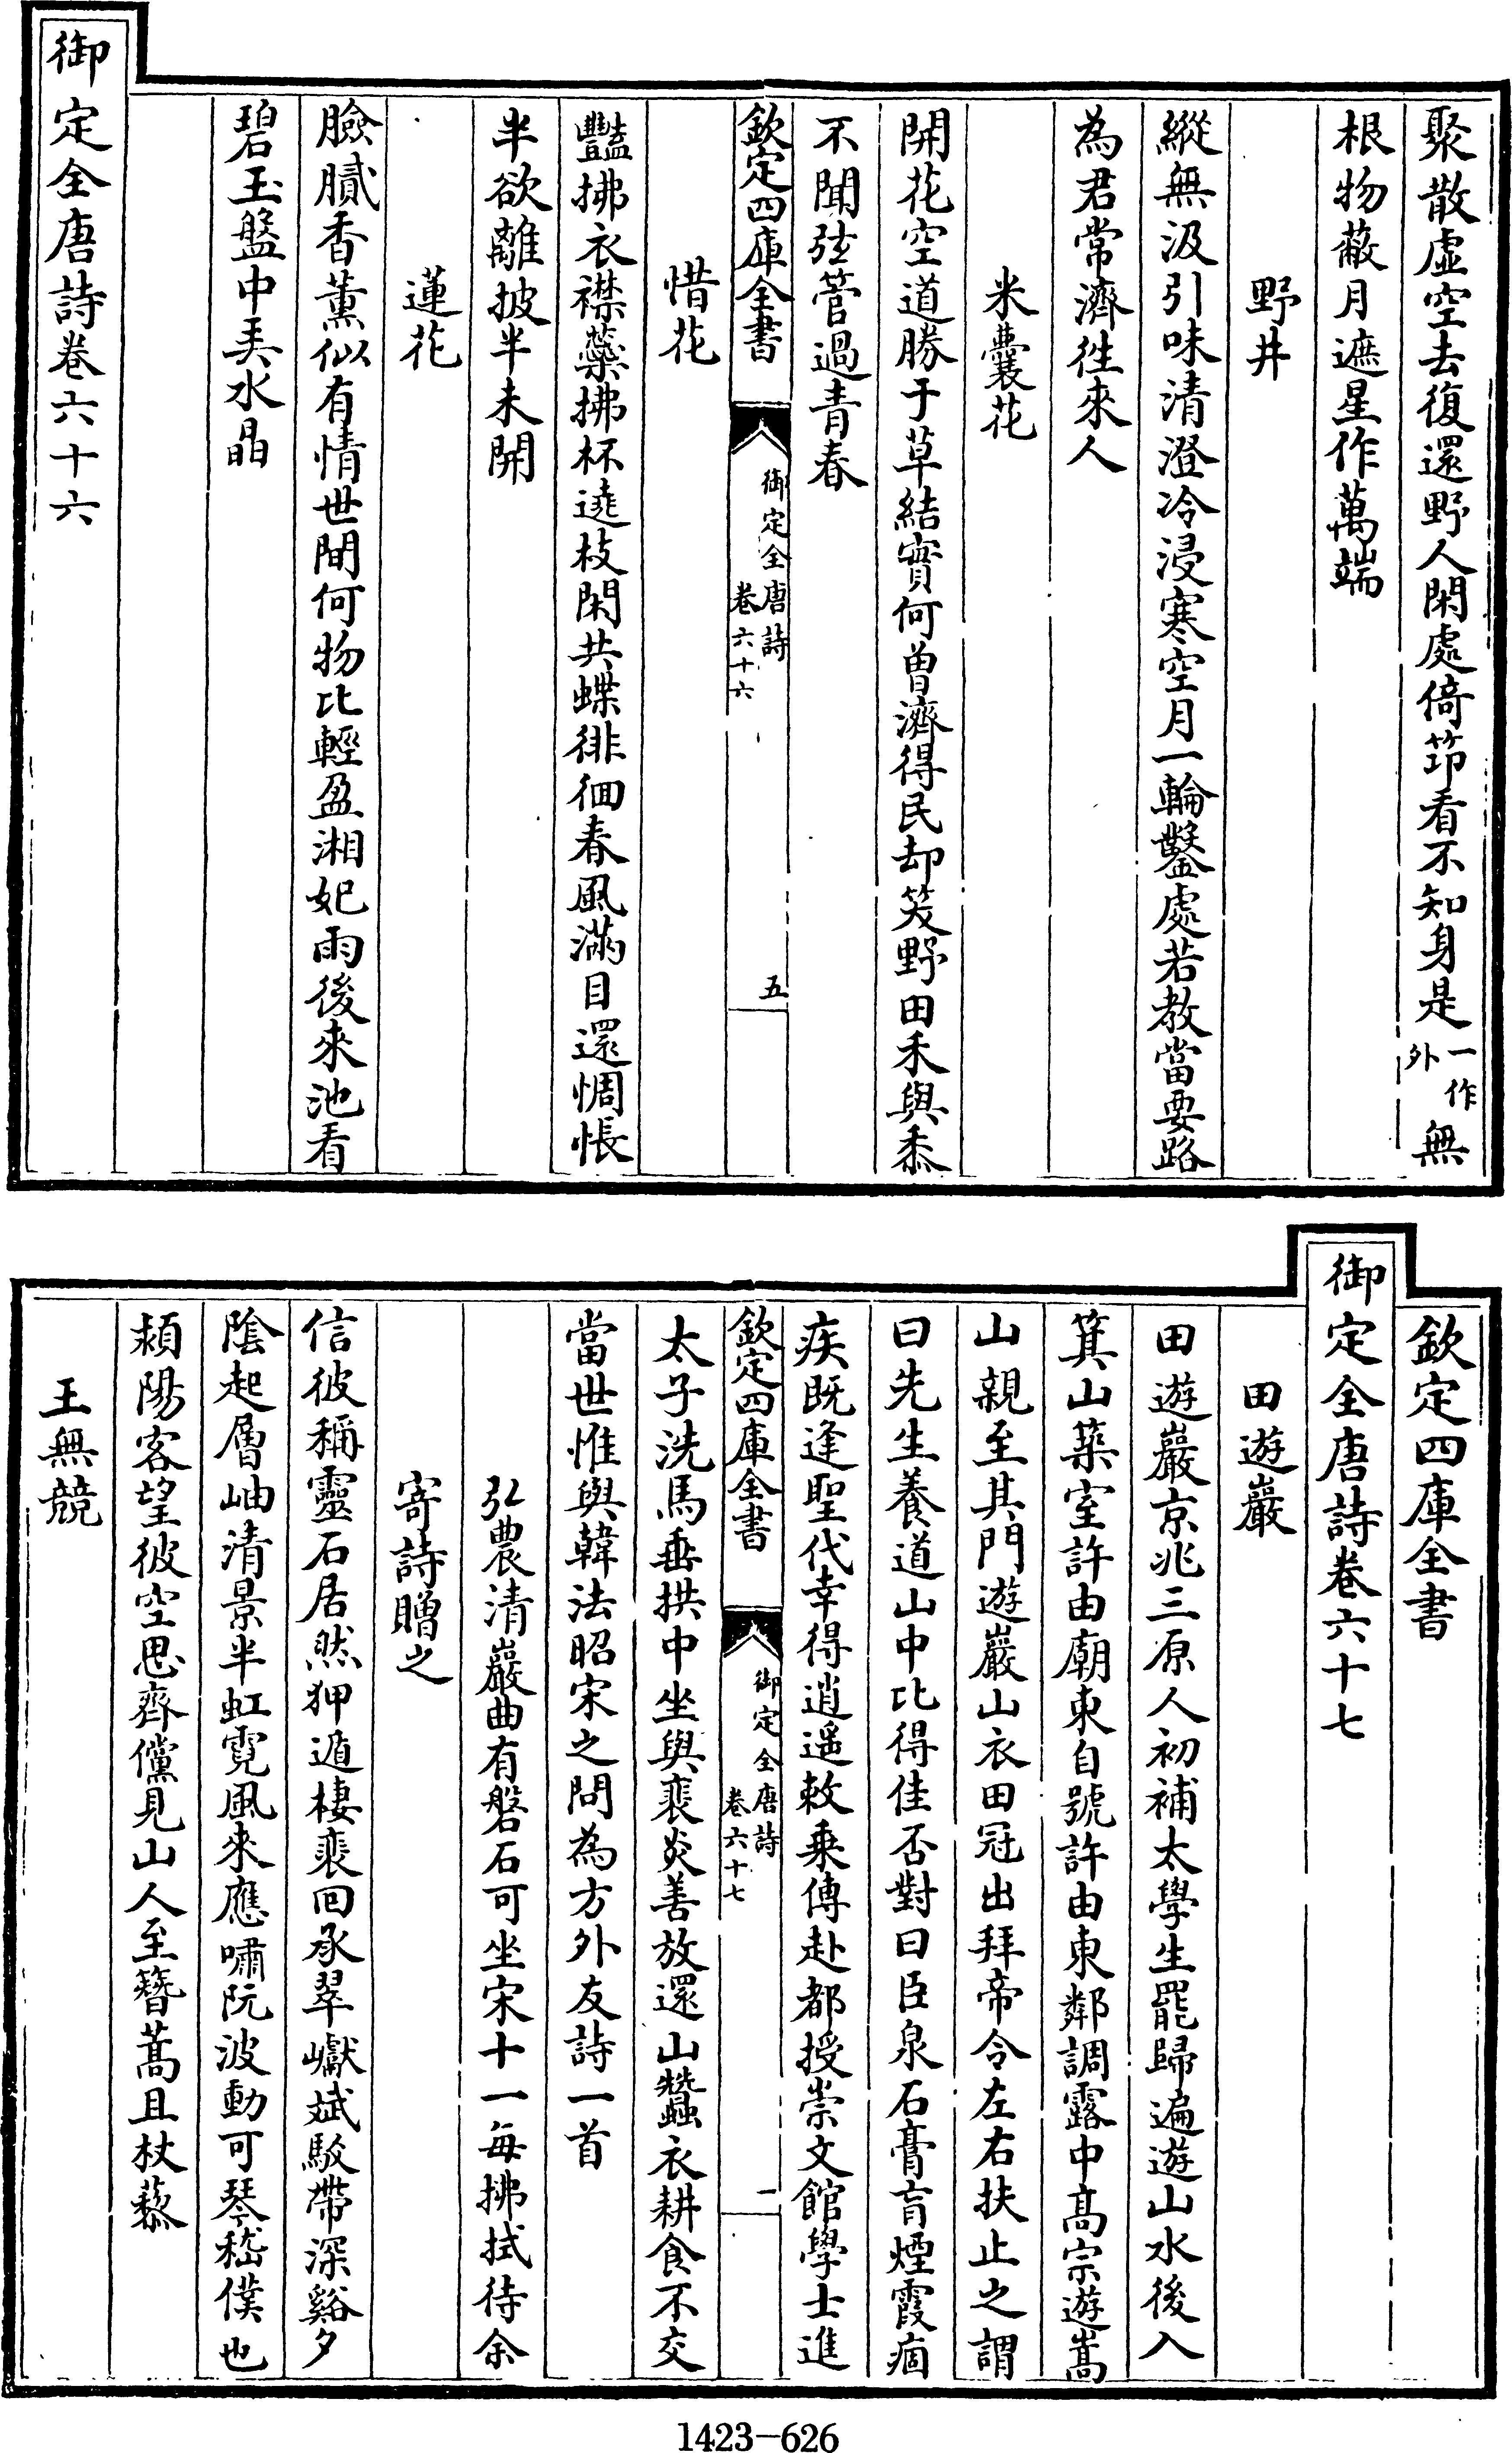 聚散虛空去復還野人閑處倚筇看不知身是一作外無
根物蔽月遮星作萬端
野井
縱無汲引味清澄冷浸寒空月一輪鑿處若教當要路
為君常濟徃來人
米囊花
開花空道勝于草結實何曽濟得民却笑野田禾與黍
不聞弦管過青春
欽定四庫全書
御定全唐詩
卷六十六
五
惜花
豔拂衣襟蘂拂杯遶枝閑共蝶徘徊春風滿目還惆悵
半欲離披半未開
蓮花
臉膩香薰似有情世間何物比輕盈湘妃雨後來池看
碧玉盤中美水晶
御定全唐詩卷六十六
欽定四庫全書
御定全唐詩卷六十七
田遊巖
田遊巖京兆三原人初補太學生罷歸遍遊山水後入
箕山築室許由廟東自號許由東鄰調露中髙宗遊嵩
山親至其門遊巖山衣田冠出拜帝令左右扶止之謂
曰先生養道山中比得佳否對曰臣泉石膏肓煙霞痼
疾既逢聖代幸得逍遥敕乗傳赴都授崇文館學士進
欽定四庫全書
御定全唐詩
卷六十七
一
太子洗馬垂拱中坐與裴炎善放還山蠶衣耕食不交
當世惟與韓法昭宋之問為方外友詩一首
弘農清巖曲有磐石可坐宋十一每拂拭待余
寄詩贈之
信彼稱靈石居然狎遁棲裴回承翠巘斌駮帶深谿夕
陰起層岫清景半虹霓風來應嘯阮波動可琴嵇僕也
頛陽客望彼空思齊儻見山人至簪蒿且杖藜
王無競
1423-626